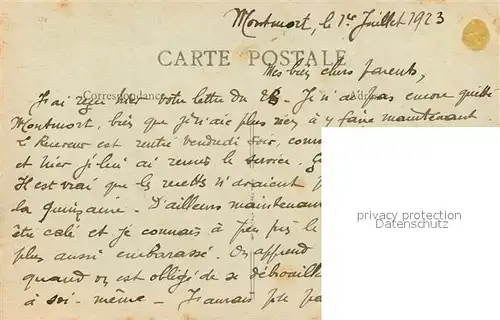 Montmort, le 1er Juillet 1923
CARTE POSTALE
Mes bien chers parents,
Correspondance
Adresse
J'ai reçu hier votre lettre du 28. Je n'ai pas encore quitté
Montmort, bien que je n'aie plus rien à y faire maintenant
Le Receveur est rentré vendredi soir, comm
et hier je lui ai remis le service.
Il est vrai que les recettes n'avaient
la quinzaine. D'ailleurs maintenant
être calé et je connais à peu près le
plus aussi embarassé. On apprend
quand on est obligé de se débrouill
à soi-même - J'aurais
privacy protection
Datenschutz